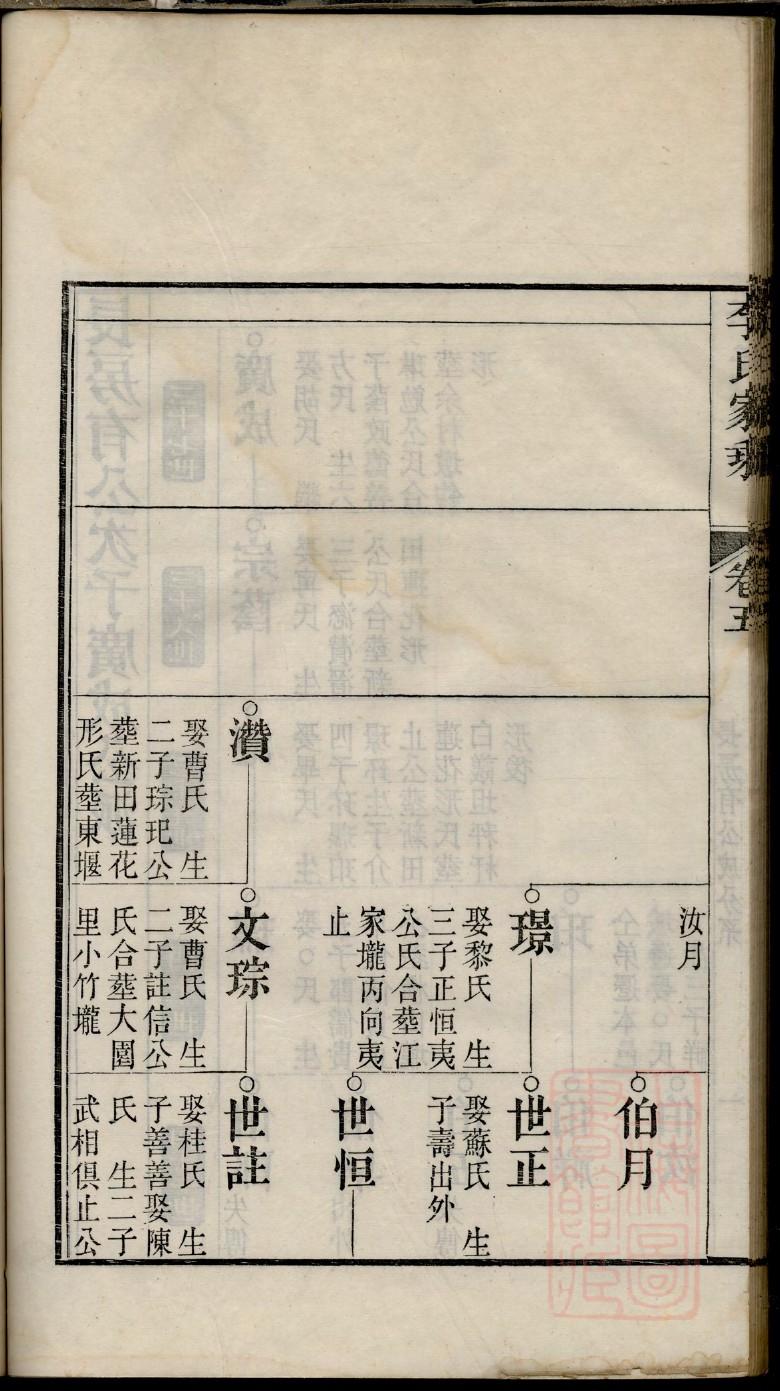 李氏家乘
卷五
汝月
伯月
璟
娶黎氏　生
三子正恒夷
公氏合塟江
家壠丙向夷
止
世正
娶蘇氏　生
子壽出外
世恒
瓚
娶曹氏　生
二子琮玘公
塟新田蓮花
形氏塟東堰
文琮
娶曹氏　生
二子註信公
氏合塟大園
里小竹壠
世註
娶桂氏　生
子善善娶陳
氏　生二子
武相俱止公